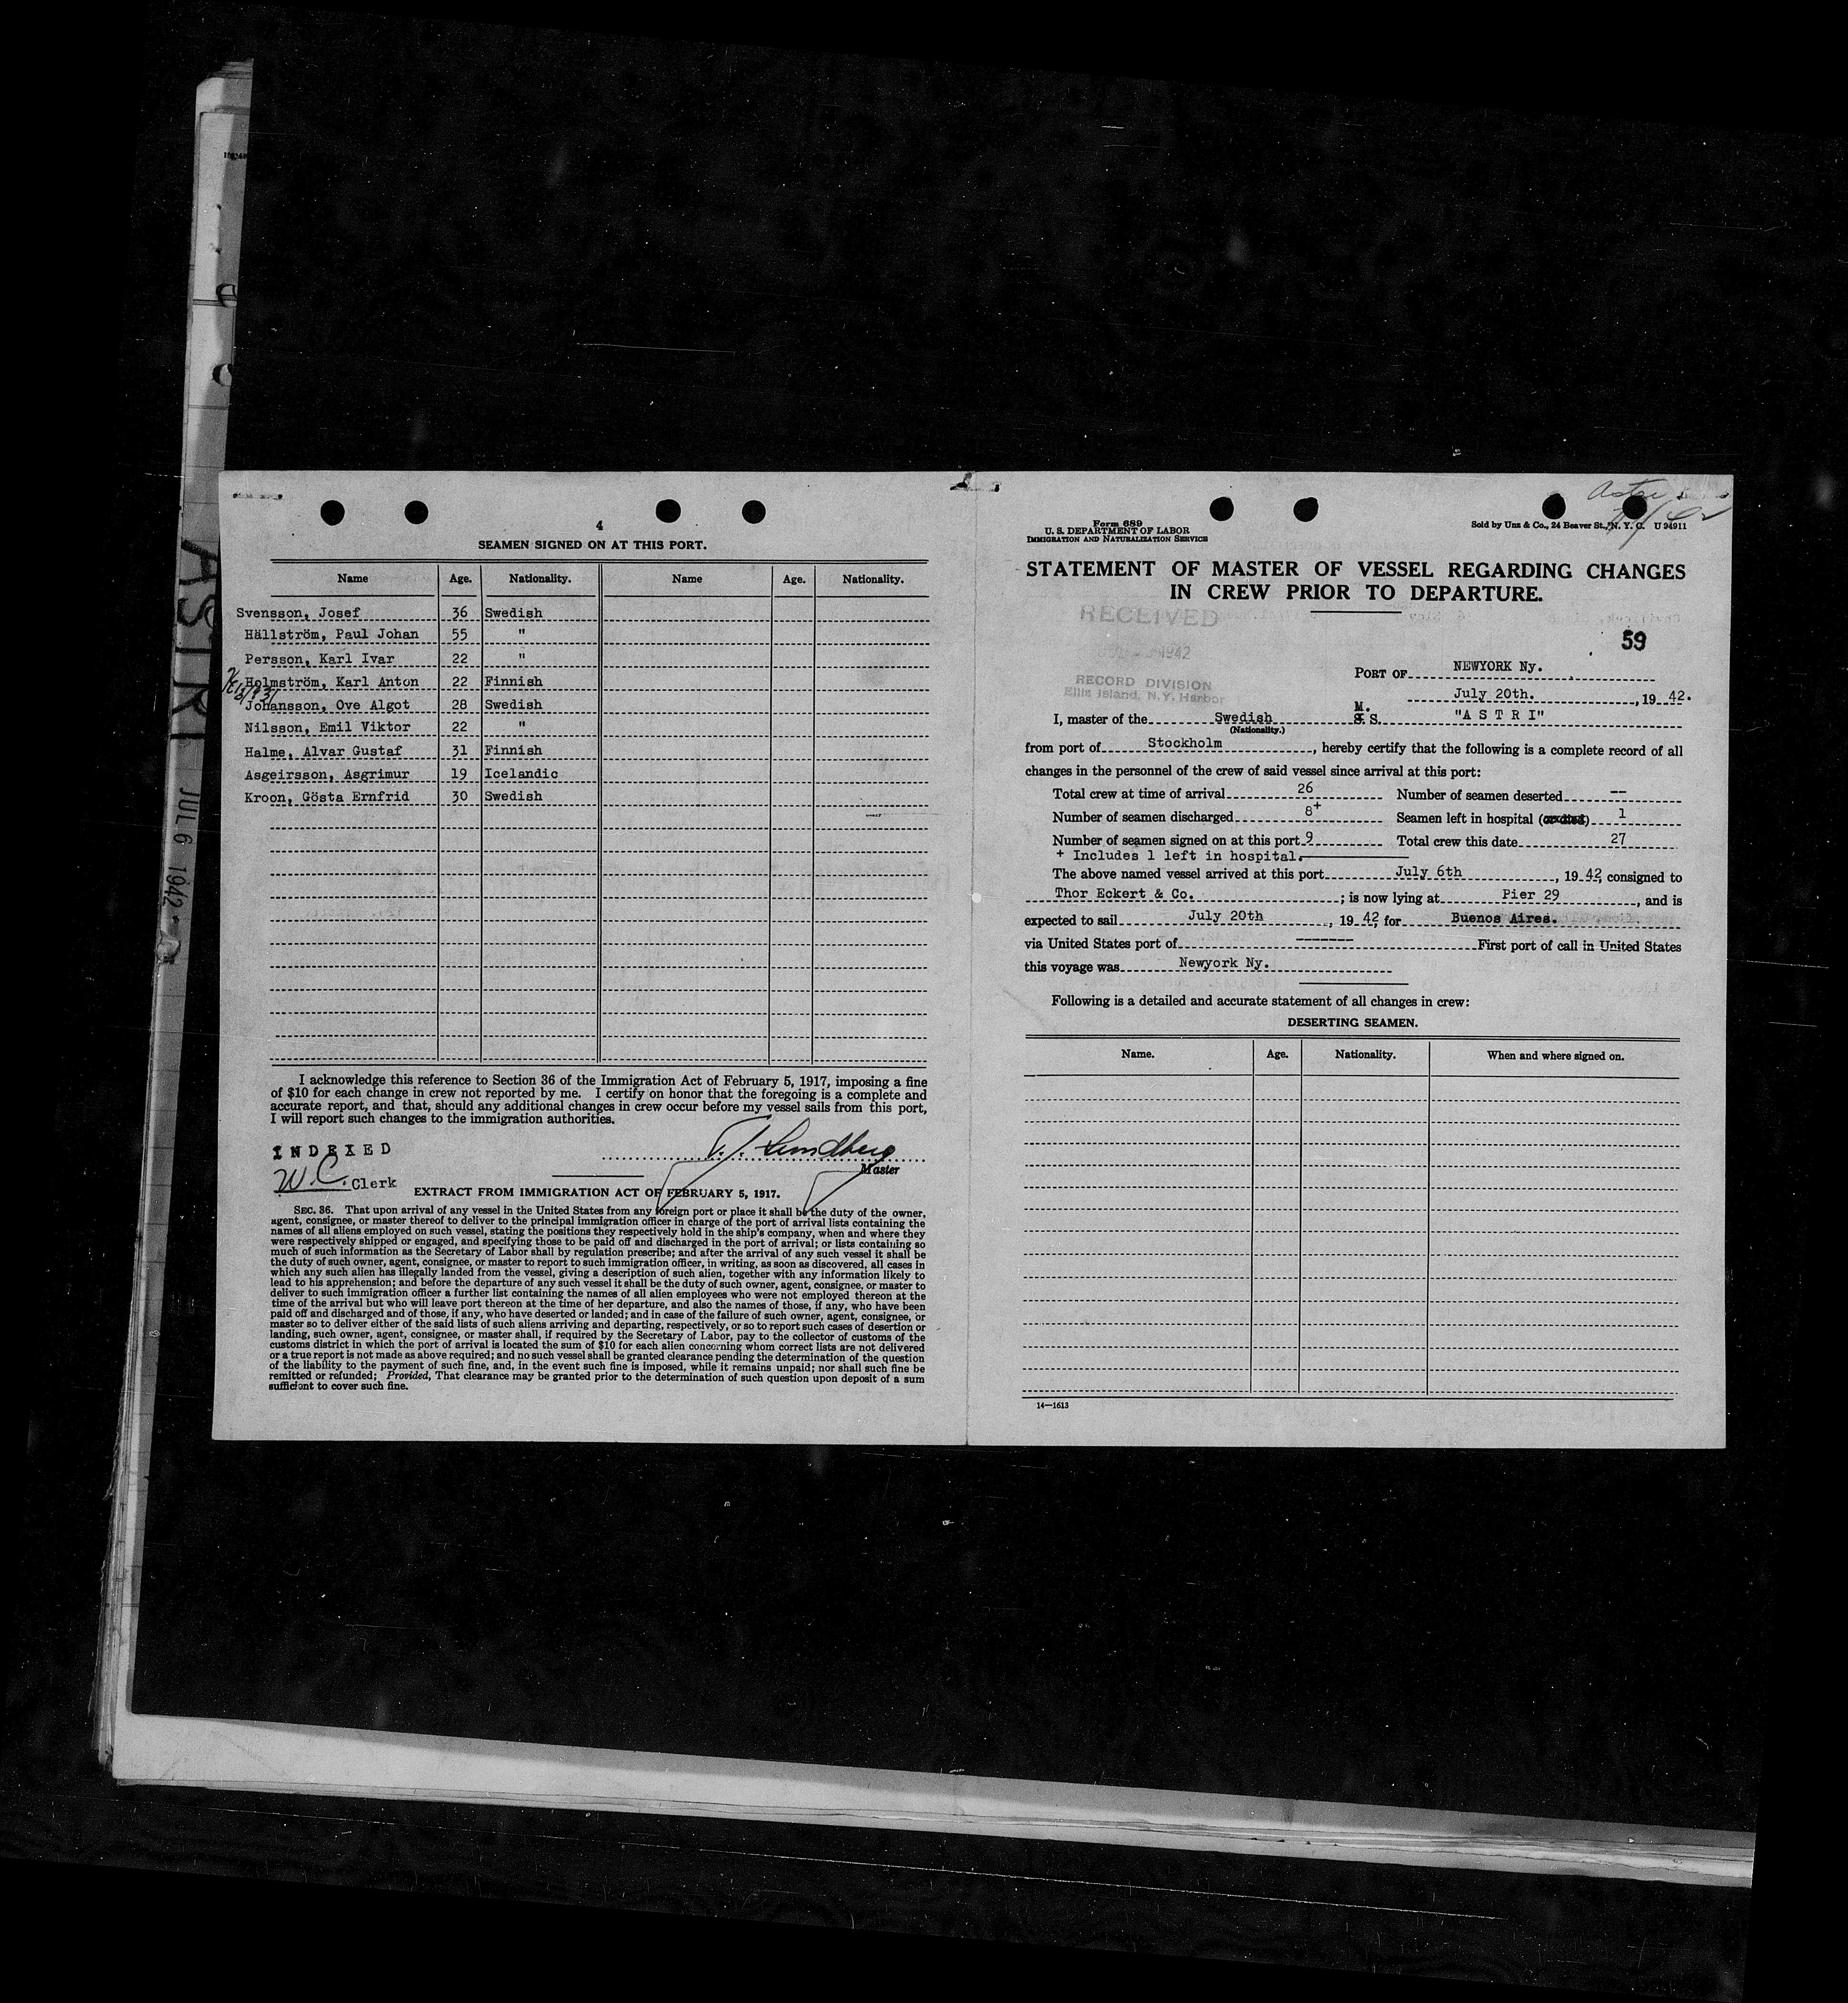 ASTRI JUL 6 1942
4
SEAMEN SIGNED ON AT THIS PORT.
Name Age. Nationality. Name Age. Nationality.
Svensson, Josef 36 Swedish
Hällström, Paul Johan 55 "
Persson, Karl Ivar 22 "
Holmström, Karl Anton 22 Finnish
Johansson, Ove Algot 28 Swedish
Nilsson, Emil Viktor 22 "
Halme, Alvar Gustaf 31 Finnish
Asgeirsson, Asgrimur 19 Icelandic
Kroon, Gösta Ernfrid 30 Swedish
I acknowledge this reference to Section 36 of the Immigration Act of February 5, 1917, imposing a fine
of $10 for each change in crew not reported by me. I certify on honor that the foregoing is a complete and
accurate report, and that, should any additional changes in crew occur before my vessel sails from this port,
I will report such changes to the immigration authorities.
INDEXED
W.C. Clerk
Lundberg
Master
EXTRACT FROM IMMIGRATION ACT OF FEBRUARY 5, 1917.
SEC. 36. That upon arrival of any vessel in the United States from any foreign port or place it shall be the duty of the owner,
agent, consignee, or master thereof to deliver to the principal immigration officer in charge of the port of arrival lists containing the
names of all aliens employed on such vessel, stating the positions they respectively hold in the ship's company, when and where they
were respectively shipped or engaged, and specifying those to be paid off and discharged in the port of arrival; or lists containing so
much of such information as the Secretary of Labor shall by regulation prescribe; and after the arrival of any such vessel it shall be
the duty of such owner, agent, consignee, or master to report to such immigration officer, in writing, as soon as discovered, all cases in
which any such alien has illegally landed from the vessel, giving a description of such alien, together with any information likely to
lead to his apprehension; and before the departure of any such vessel it shall be the duty of such owner, agent, consignee, or master to
deliver to such immigration officer a further list containing the names of all alien employees who were not employed thereon at the
time of the arrival but who will leave port thereon at the time of her departure, and also the names of those, if any, who have been
paid off and discharged and of those, if any, who have deserted or landed; and in case of the failure of such owner, agent, consignee, or
master so to deliver either of the said lists of such aliens arriving and departing, respectively, or so to report such cases of desertion or
landing, such owner, agent, consignee, or master shall, if required by the Secretary of Labor, pay to the collector of customs of the
customs district in which the port of arrival is located the sum of $10 for each alien concerning whom correct lists are not delivered
or a true report is not made as above required; and no such vessel shall be granted clearance pending the determination of the question
of the liability to the payment of such fine, and, in the event such fine is imposed, while it remains unpaid; nor shall such fine be
remitted or refunded; Provided, That clearance may be granted prior to the determination of such question upon deposit of a sum
sufficient to cover such fine.
Form 689
U. S. DEPARTMENT OF LABOR
IMMIGRATION AND NATURALIZATION SERVICE
Sold by Unz & Co., 24 Beaver St., N. Y. C. U 94911
STATEMENT OF MASTER OF VESSEL REGARDING CHANGES
IN CREW PRIOR TO DEPARTURE.
RECEIVED
1942
RECORD DIVISION
Ellis Island, N.Y. Harbor
59
PORT OF NEWYORK Ny.
July 20th. , 19 42.
I, master of the Swedish M. S. S. "A S T R I"
(Nationality.)
from port of Stockholm , hereby certify that the following is a complete record of all
changes in the personnel of the crew of said vessel since arrival at this port:
Total crew at time of arrival 26 Number of seamen deserted --
Number of seamen discharged 8+ Seamen left in hospital 1
Number of seamen signed on at this port 9 Total crew this date 27
+ Includes 1 left in hospital.
The above named vessel arrived at this port July 6th , 19 42, consigned to
Thor Eckert & Co. ; is now lying at Pier 29 , and is
expected to sail July 20th , 19 42, for Buenos Aires.
via United States port of ------- First port of call in United States
this voyage was Newyork Ny.
Following is a detailed and accurate statement of all changes in crew:
DESERTING SEAMEN.
Name. Age. Nationality. When and where signed on.
14—1613